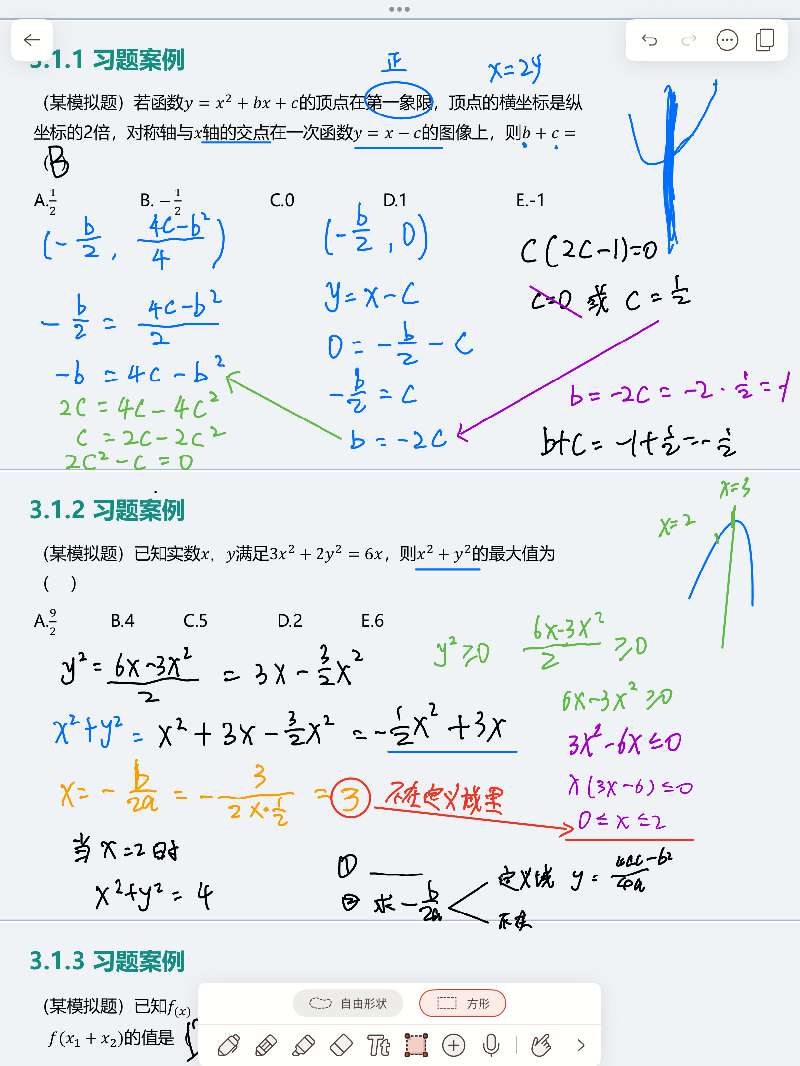 3.1.1 习题案例
正
x=2y
（某模拟题）若函数y = x² + bx + c的顶点在第一象限，顶点的横坐标是纵
坐标的2倍，对称轴与x轴的交点在一次函数y = x − c的图像上，则b + c =
(B
A.1/2 B. −1/2 C.0 D.1 E.-1
(-b/2, (4c-b²)/4)
-b/2 = (4c-b²)/2
-b = 4c-b²
2c=4c-4c²
c=2c-2c²
2c²-c=0
(-b/2, 0)
y=x-c
0=-b/2-c
-b/2=c
b=-2c
c(2c-1)=0
c=0 或 c=1/2
b=-2c=-2·1/2=-1
b+c=-1+1/2=-1/2
3.1.2 习题案例
x=3
x=2
（某模拟题）已知实数x，y满足3x² + 2y² = 6x，则x² + y²的最大值为
（ ）
A.9/2 B.4 C.5 D.2 E.6
y²=(6x-3x²)/2 = 3x-3/2x²
x²+y²= x²+3x-3/2x² =-1/2x²+3x
x=-b/2a=-3/(2×-1/2)=3 不在定义域里
y²≥0 (6x-3x²)/2≥0
6x-3x²≥0
3x²-6x≤0
x(3x-6)≤0
0≤x≤2
当x=2时
x²+y²=4
①
② 求-b/2a
定义域 y=(4ac-b²)/4a
不在
3.1.3 习题案例
（某模拟题）已知f(x)
f(x₁ + x₂)的值是
自由形状 方形
Tt